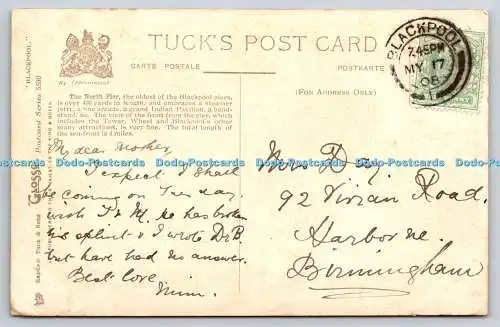 TUCK'S POST CARD
CARTE POSTALE
POSTKARTE
By Appointment
(FOR ADDRESS ONLY)
The North Pier, the oldest of the Blackpool piers,
is over 450 yards in length; and embraces a steamer
jetty, a fine arcade, a grand Indian Pavilion, a band-
stand, &c. The view of the front from the pier, which
includes the Tower, Wheel and Blackpool's other
many attractions, is very fine. The total length of
the sea-front is 4 miles.
"BLACKPOOL."
Postcard Series 5530
GLOSSO
Raphael Tuck & Sons
BLACKPOOL
7.45PM
MY 17
08
My dear Mother
I expect I shall
be coming on Tuesday.
wrote
he has broken
his splint & I wrote Dr B
but have had no answer.
Best love
Mrs
92 Vivian Road.
Harborne.
Birmingham
Dodo-Postcards Dodo-Postcards Dodo-Postcards Dodo-Postcards Dodo-Postcards